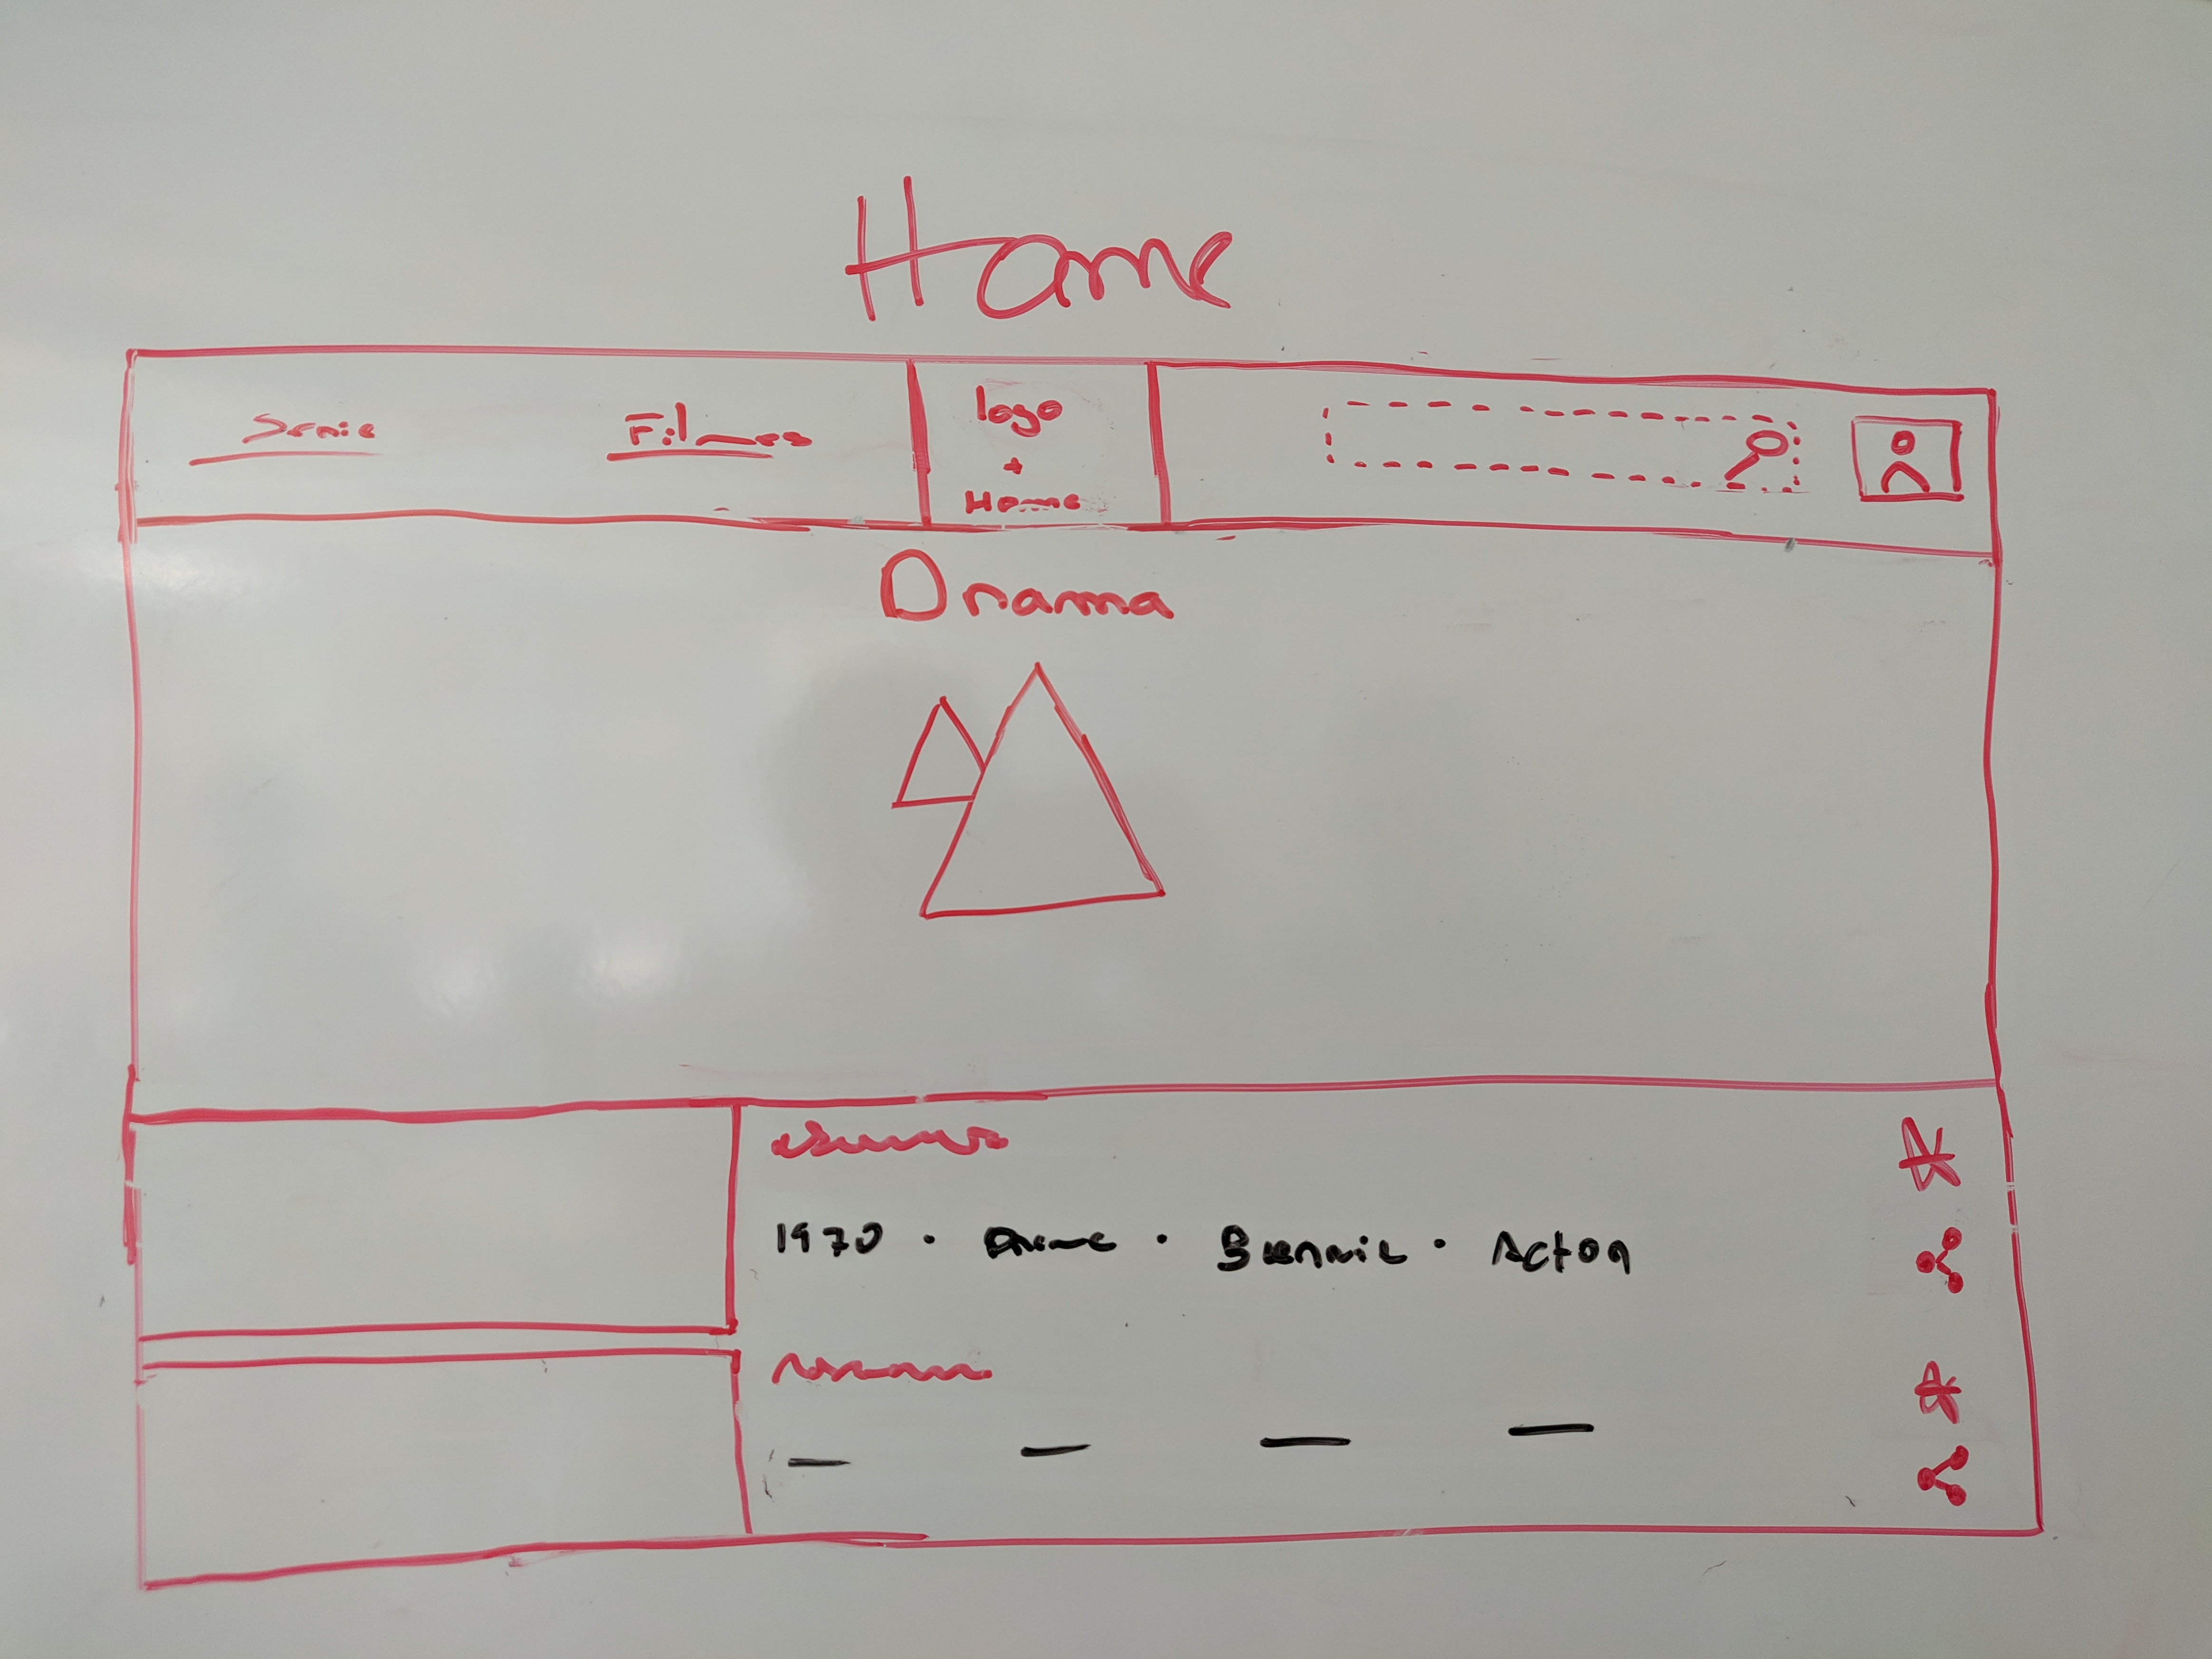 Home
Serie
Filmes
logo
+
Home
Drama
1970 · · · Acton